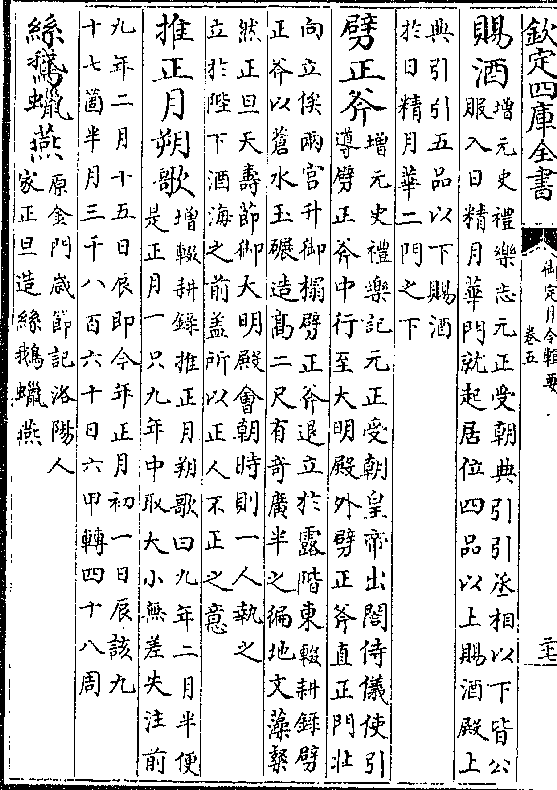 欽定四庫全書
御定月令輯要
卷五
賜酒
增元史禮樂志元正受朝典引引丞相以下皆公
服入日精月華門就起居位四品以上賜酒殿上
典引引五品以下賜酒
於日精月華二門之下
劈正斧
增元史禮樂記元正受朝皇帝出閤侍儀使引
導劈正斧中行至大明殿外劈正斧直正門北
向立俟兩宫升御榻劈正斧退立於露階東輟耕錄劈
正斧以蒼水玉碾造髙二尺有奇廣半之徧地文藻粲
然正旦天壽節御大明殿會朝時則一人執之
立於陛下酒海之前盖所以正人不正之意
推正月朔歌
增輟耕錄推正月朔歌曰九年二月半便
是正月一只九年中取大小無差失注前
九年二月十五日辰即今年正月初一日辰該九
十七箇半月三千八百六十日六甲轉四十八周
絲鵝蠟燕
原金門歲節記洛陽人
家正旦造絲鵝蠟燕